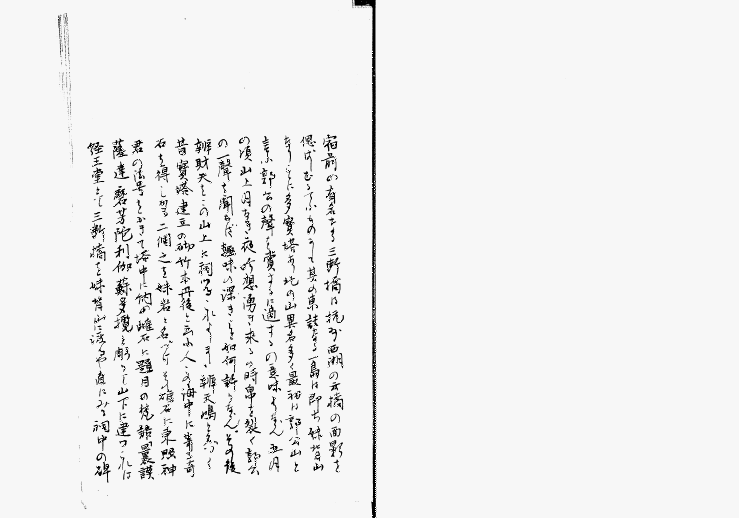 宿前の有名なる三断橋は杭州西湖の六橋の面影を
偲ばむるものにて其の東詰なる一島は即ち妹背山
なりこゝに多寳塔あり此の山異名多く最初は郭公山と
云ふ郭公の聲を賞するに適するの意味ならん五月
の頃山上月なき夜吟想湧き来るの時帛を裂く郭公
の一聲を聞かば趣味の深きこと如何許りならんその後
辨財天をこの山上に祠る これより 辨天嶋と
昔寳塔建立の砌竹本丹後と云ふ人 海中に 奇
石を得 二個之を妹岩と名づけ その雄石に東照神
君の法号をかきて塔中に納め雌石に題目の梵語曩謨
薩達磨芬陀利伽蘇多攬と彫りし山下に建つこれは
経王堂 三断橋を妹背山に渡るや直にみる祠中の碑